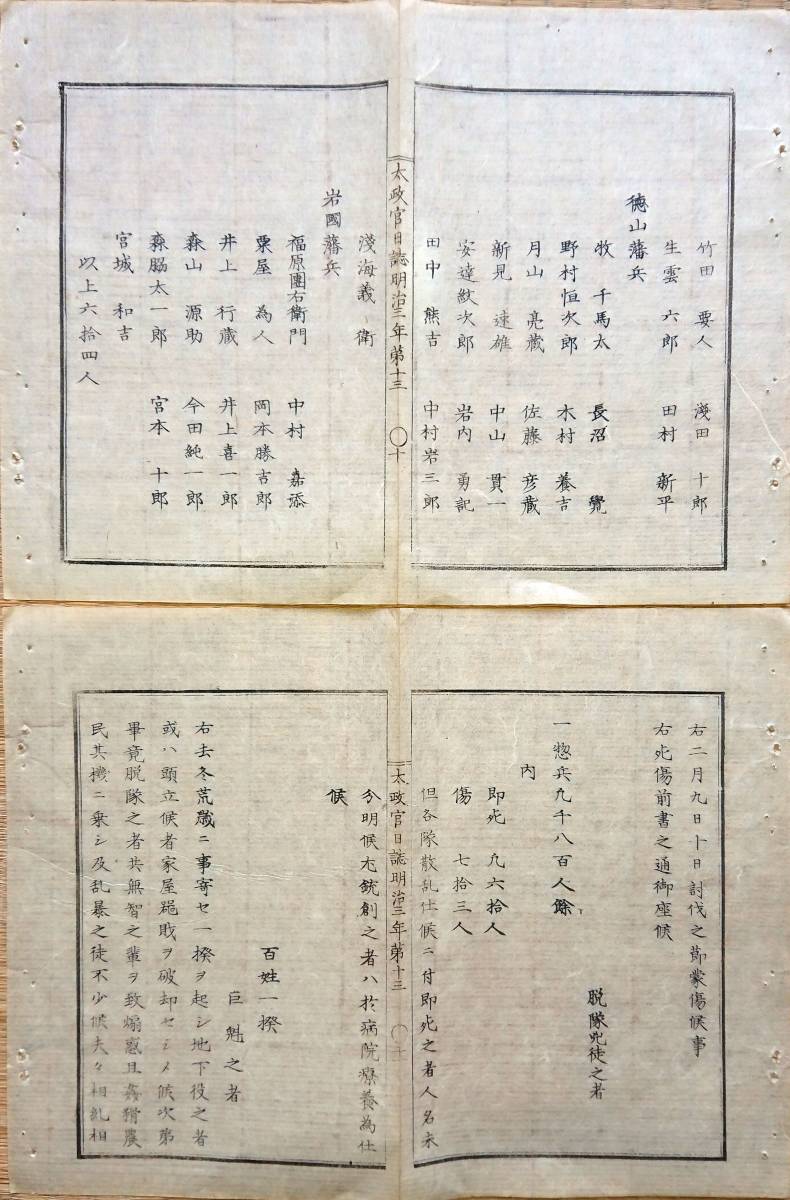 竹田 要人 淺田 十郎
生雲 六郎 田村 新平
徳山藩兵
牧 千馬太 長沼 覺
野村恒次郎 木村 養吉
月山 亮藏 佐藤 彦藏
新見 速雄 中山 貫一
安達紋次郎 岩内 勇記
田中 熊吉 中村岩三郎
太政官日誌明治三年第十三 〇十
淺海義衛
岩國藩兵
福原團右衛門 中村 嘉添
粟屋 為人 岡本勝吉郎
井上 行藏 井上喜一郎
森山 源助 今田純一郎
森脇太一郎 宮本 十郎
宮城 和吉
以上六拾四人
右二月九日十日討伐之節蒙傷候事
右死傷前書之通御座候
脱隊兇徒之者
一惣兵九千八百人餘
内
即死 凡六拾人
傷 七拾三人
但各隊散乱仕候ニ付即死之者人名未
太政官日誌明治三年第十三
分明候尤銃創之者ハ於病院療養為仕
候
百姓一揆
巨魁之者
右去冬荒歳ニ事寄セ一揆ヲ起シ地下役之者
或ハ頭立候者家屋
ヲ破却セシメ候次第
畢竟脱隊之者共無智之輩ヲ致煽惑且姦猾農
民其機ニ乗シ及乱暴之徒不少候夫々相糺相